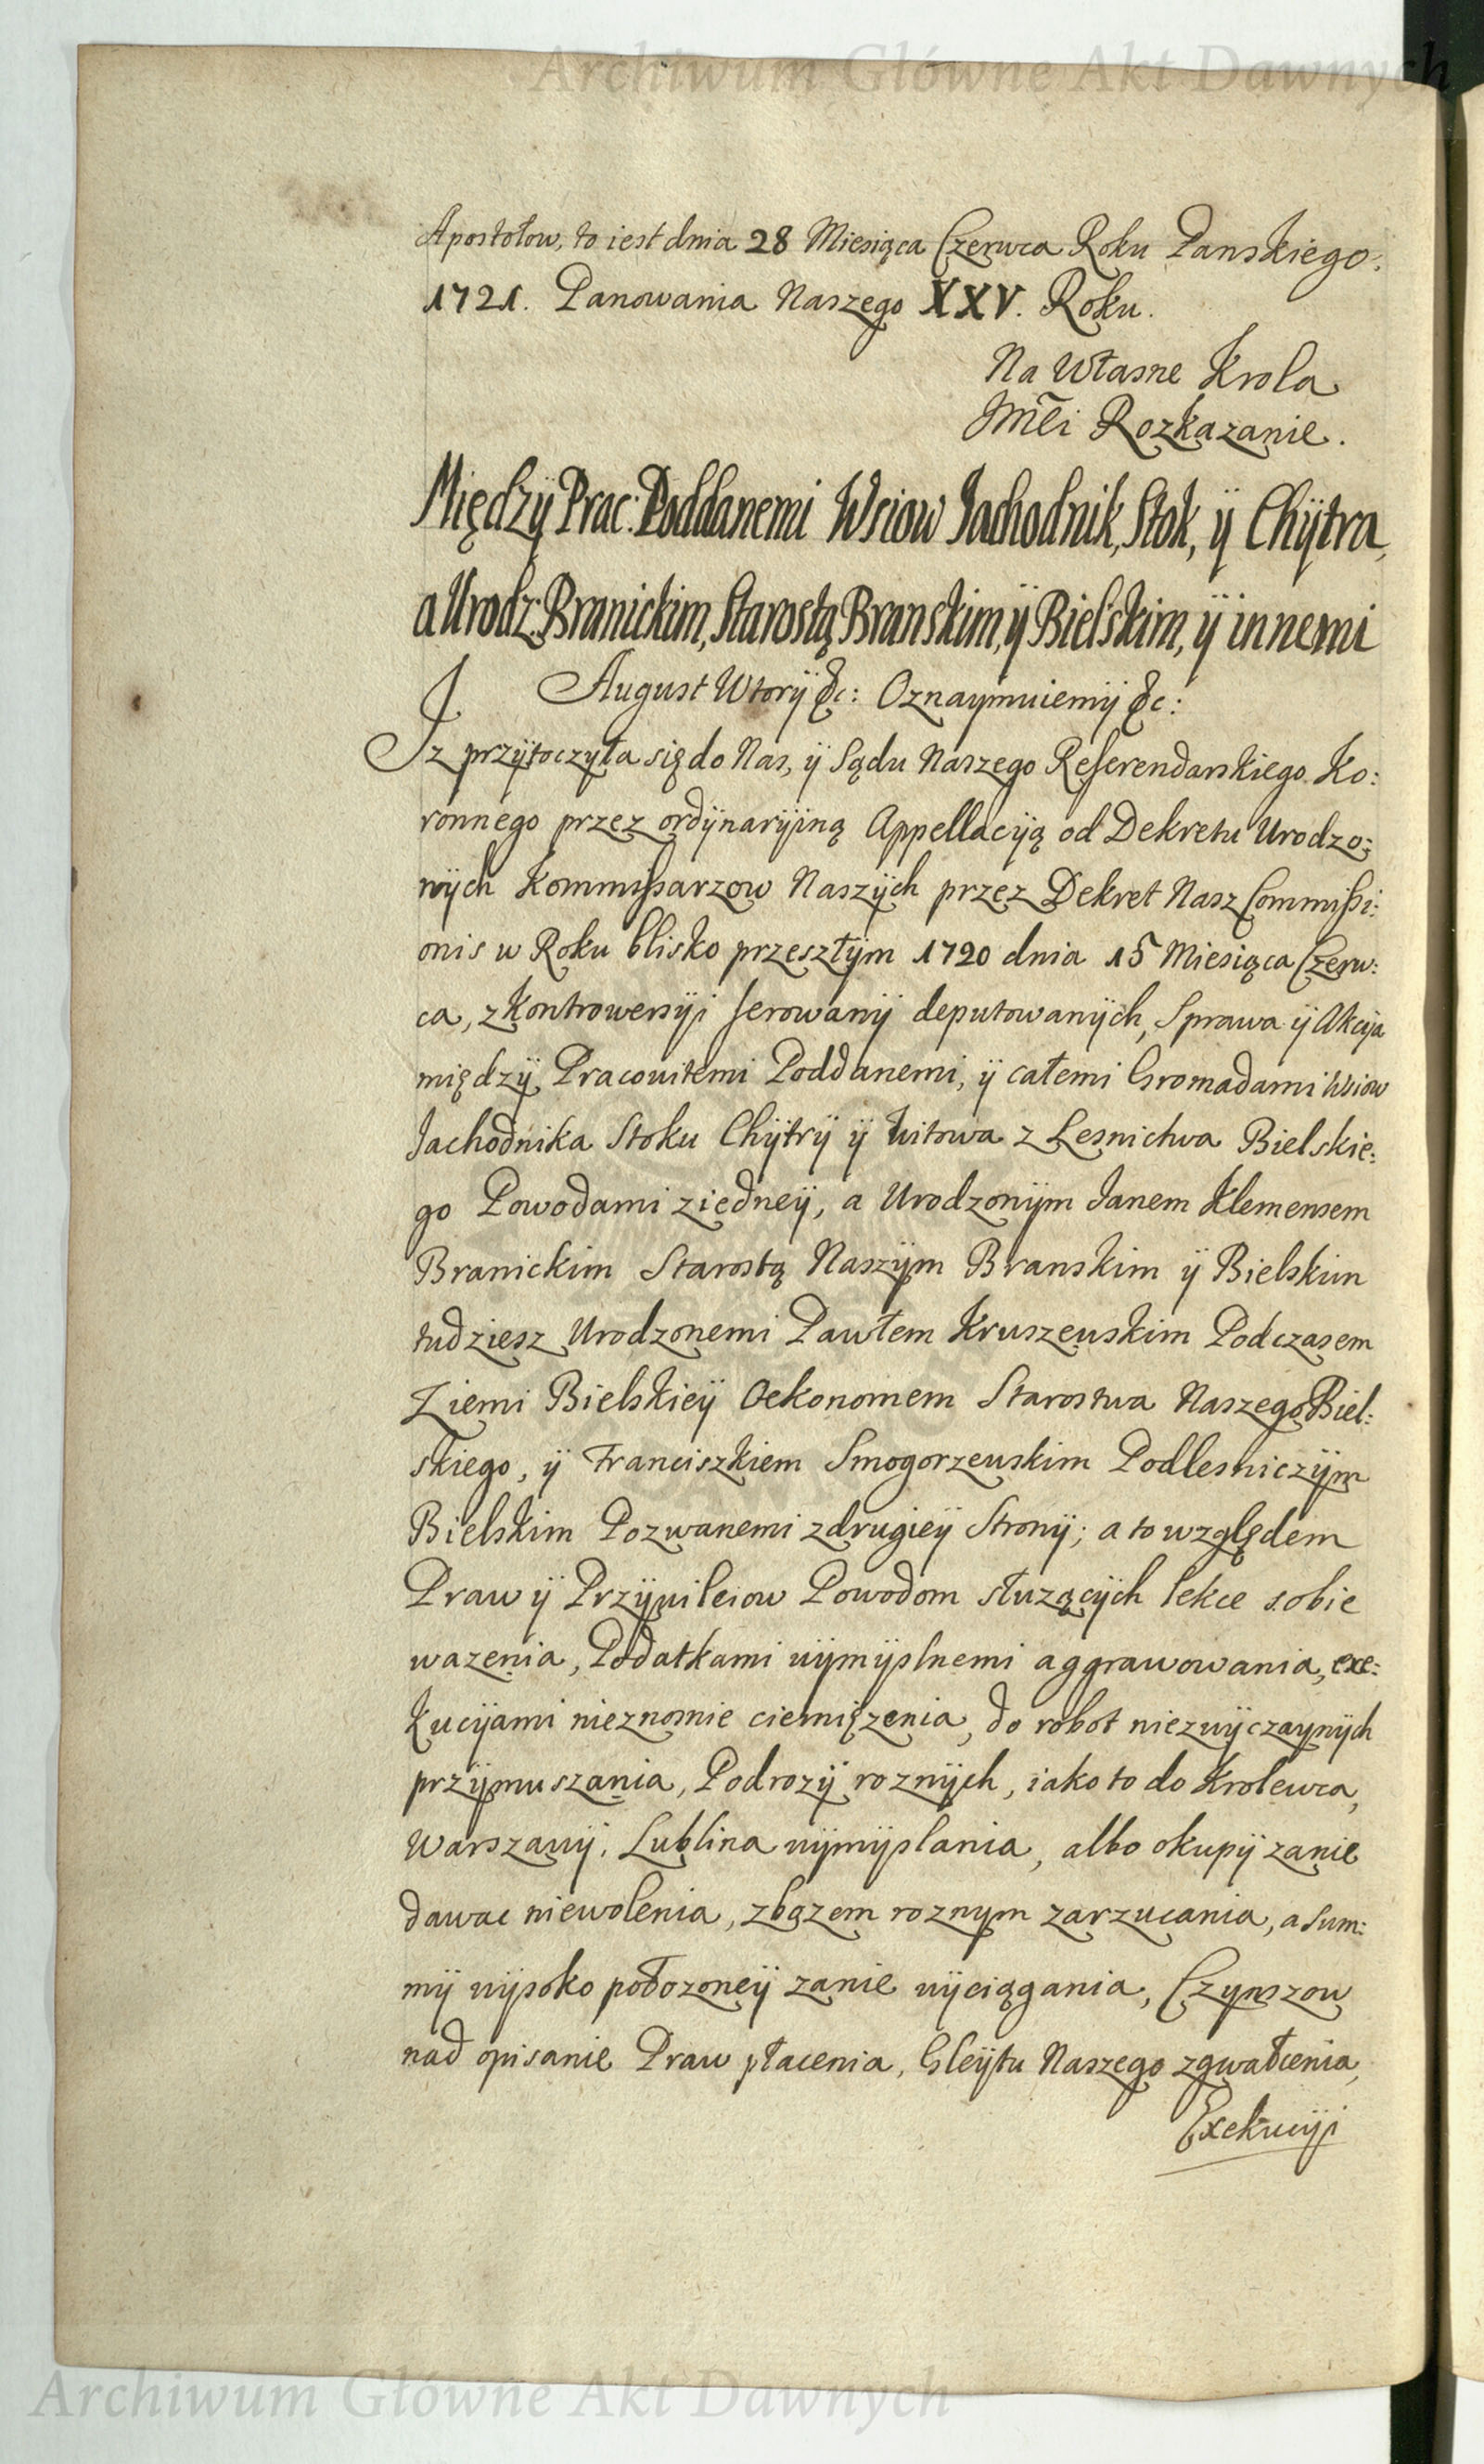 Archiwum Główne Akt Dawnych
Apostołow, to iest dnia 28 Miesiąca Czerwca Roku Panskiego:
1721. Panowania Naszego XXV. Roku.
Na Własne Krola
Jmc̃i Rozkazanie.
Między Prac: Poddanemi Wsiow Jachodnik, Stok, ÿ Chÿtra,
a Urodz: Branickim, Starostą Branskim, ÿ Bielskim, ÿ innemi
August Wtorÿ &c: Oznaymuiemÿ &c:
Jz przÿtoczyła się do Nas, ÿ Sądu Naszego Referendarskiego Ko:
ronnego przez ordÿnarÿiną Appellacÿą od Dekretu Urodzo:
nÿch Kommissarzow Naszÿch przez Dekret Nasz Commissi:
onis w Roku blisko przeszłÿm 1720 dnia 15 Miesiąca Czerw:
ca, z Kontrowersÿi ferowanÿ deputowanÿch, Sprawa ÿ Akcÿa
międzÿ Pracowitemi Poddanemi, ÿ całemi Gromadami Wsiow
Jachodnika Stoku Chÿtrÿ ÿ Witowa z Lesnictwa Bielskie:
go Powodami ziedneÿ, a Urodzonÿm Janem Klemensem
Branickim Starostą Naszÿm Branskim ÿ Bielskim
tudziesz Urodzonemi Pawłem Kruszewskim Podczasem
Ziemi Bielskieÿ Oekonomem Starostwa Naszego Biel:
skiego, ÿ Franciszkiem Smogorzewskim Podlesniczÿm
Bielskim Pozwanemi zdrugieÿ Stronÿ; a to względem
Praw ÿ Przÿwileiow Powodom słuzącÿch lekce sobie
wazenia, Podatkami wÿmÿslnemi aggrawowania, exe:
kucÿami nieznosnie ciemięzenia, do robot niezwÿczaynÿch
przÿmuszania, Podrozÿ roznÿch, iako to do Krolewca,
Warszawÿ, Lublina wÿmÿslania, albo okupÿ zanie
dawac niewolenia, zbozem roznym zarzucania, a Sum:
mÿ wÿsoko połozoneÿ zanie wÿciągania, Czynszow
nad opisanie Praw płacenia, Gleÿtu Naszego zgwałcenia,
Exekucÿi
Archiwum Główne Akt Dawnych